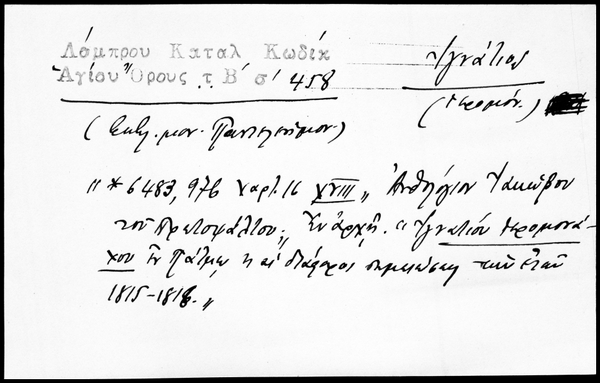 Λάμπρου Καταλ Κωδίκ
Ἁγίου Ὄρους τ. Β' σ' 458
Ἰγνάτιος
(ἱερομόν.)
(Βιβλ. μον. Παντελεήμον.)
" * 6483, 976 Χαρτ. 16 XVIII " Ἀνθολόγιον Ἰακώβου
τοῦ Πρωτοψάλτου " Ἐν ἀρχῇ. " Ἰγνατίου ἱερομονά-
χου ἐν Πάτμῳ " διάφοροι σημειώσεις τῶν ἐτῶν
1815-1818. "